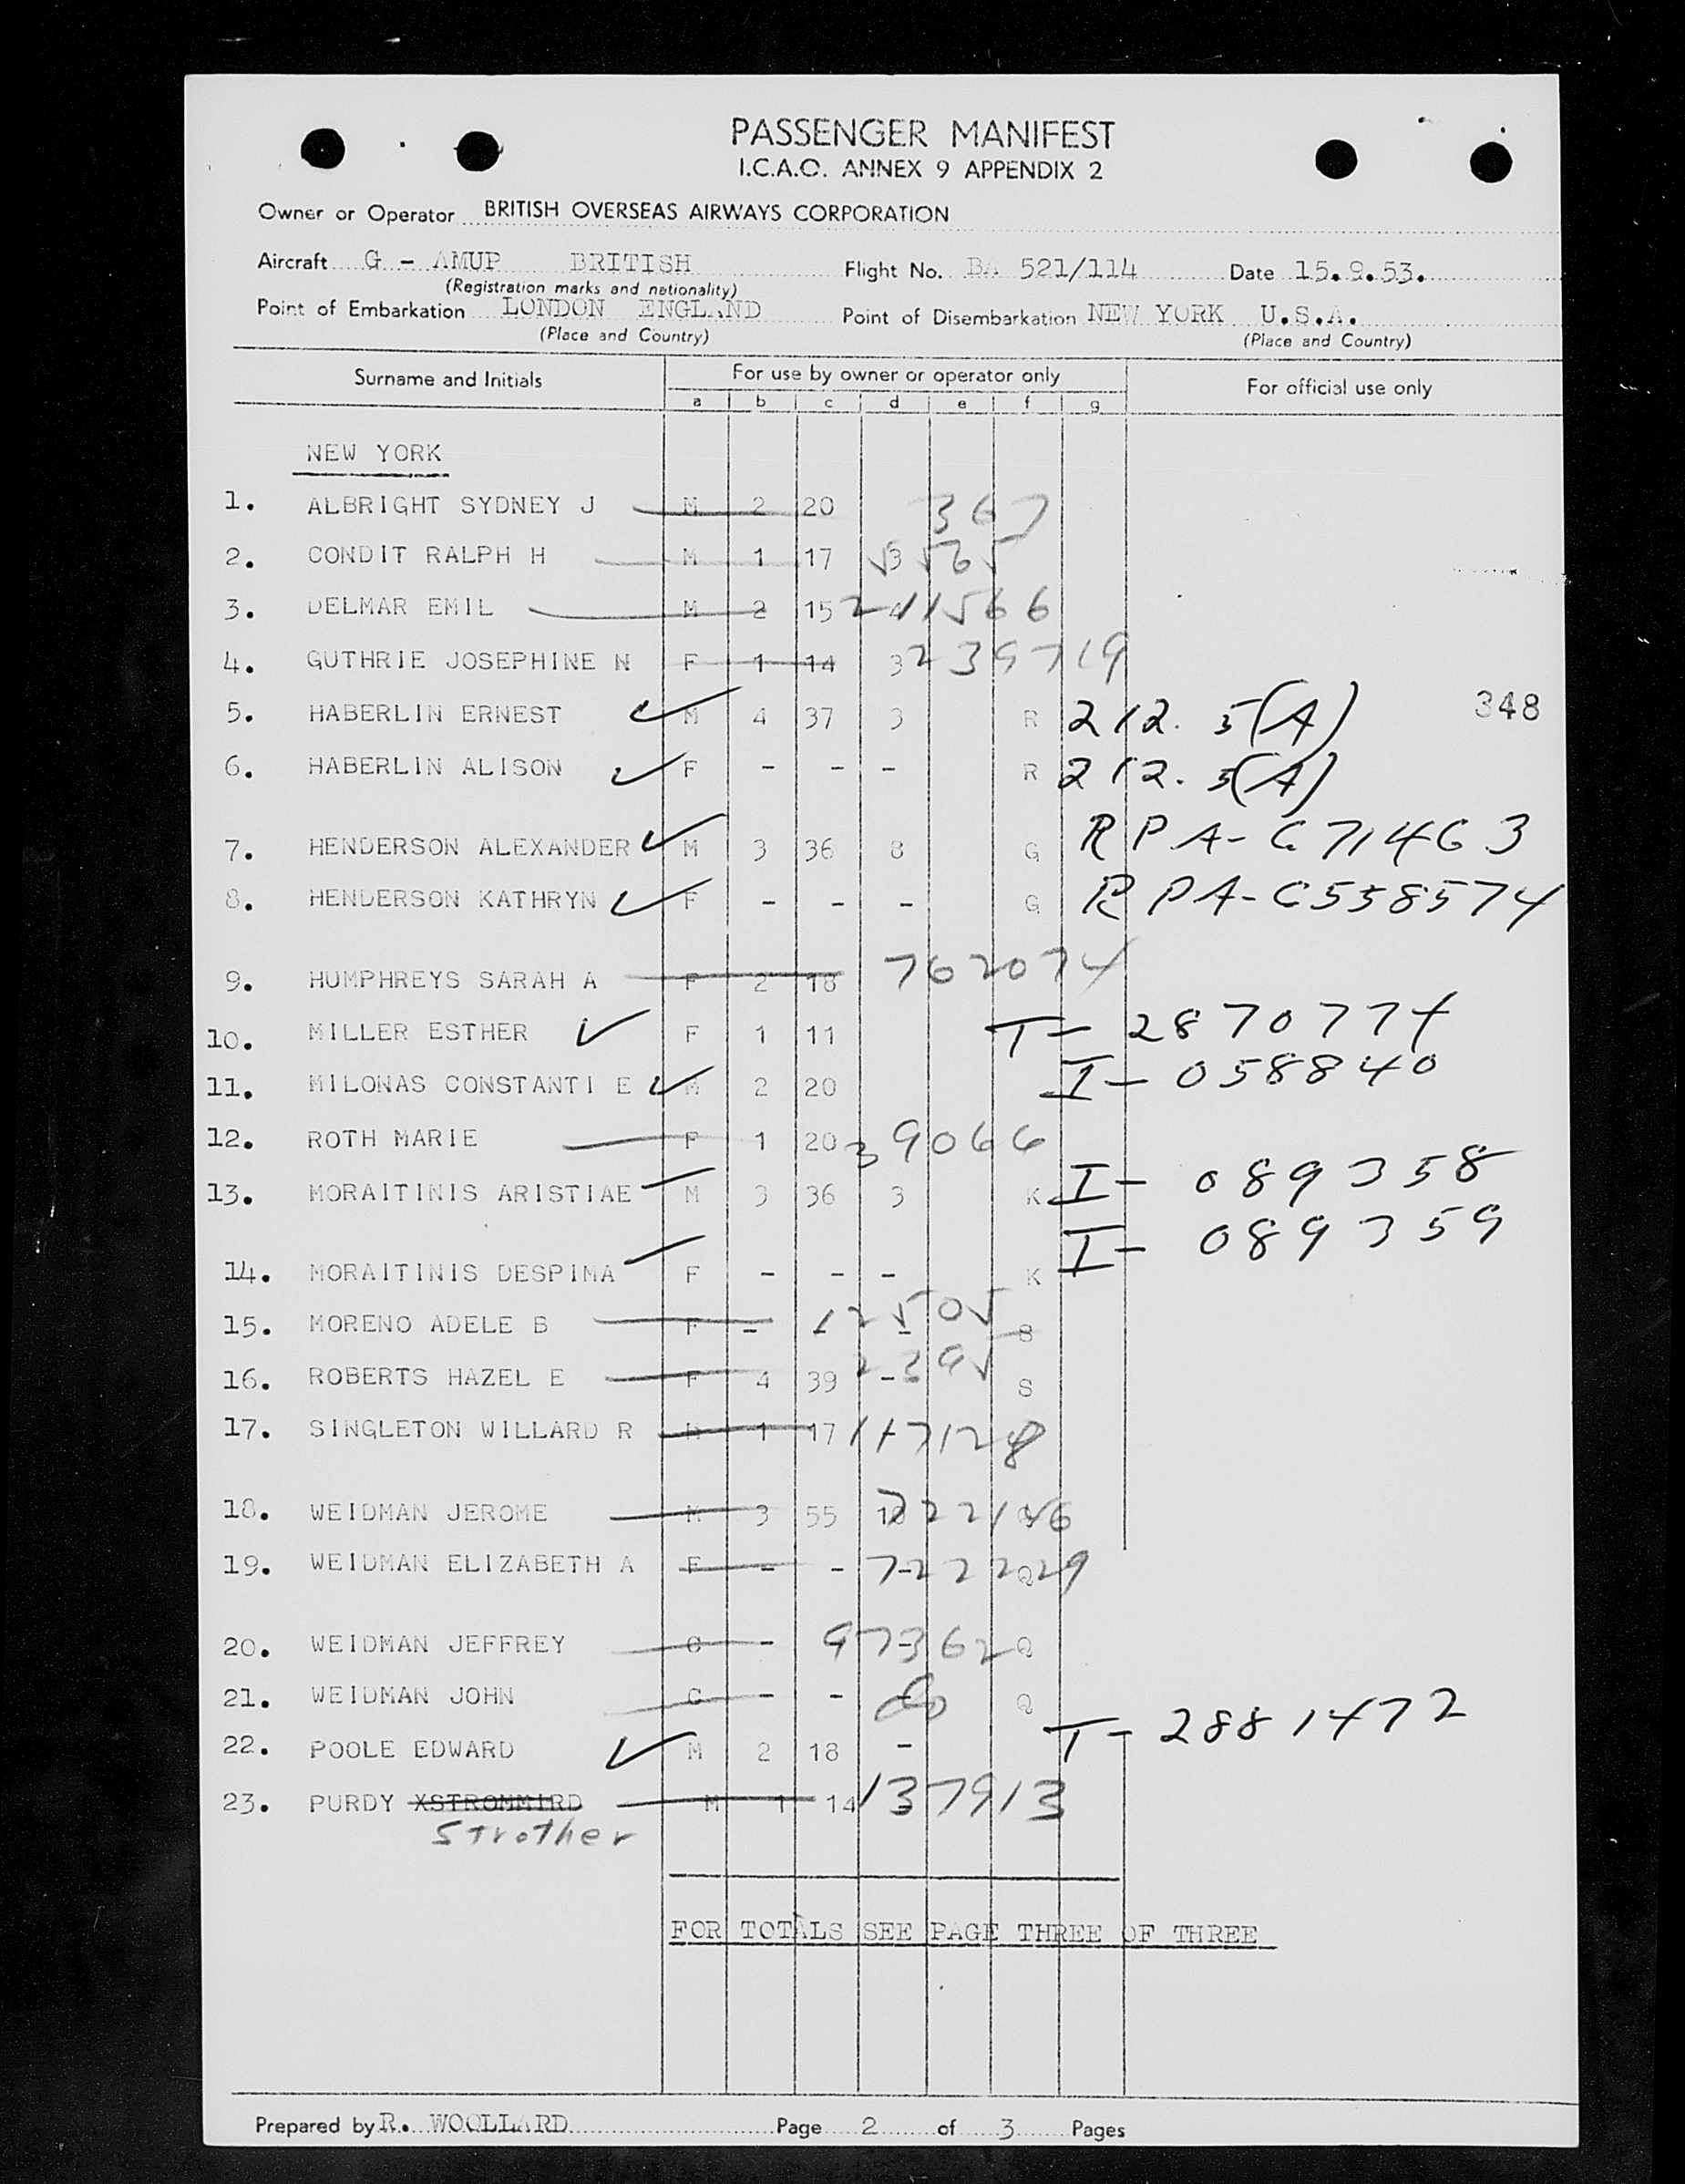 PASSENGER MANIFEST
I.C.A.O. ANNEX 9 APPENDIX 2
Owner or Operator BRITISH OVERSEAS AIRWAYS CORPORATION
Aircraft G - AMUP BRITISH Flight No. BA 521/114 Date 15.9.53.
(Registration marks and nationality)
Point of Embarkation LONDON ENGLAND Point of Disembarkation NEW YORK U.S.A.
(Place and Country) (Place and Country)
Surname and Initials For use by owner or operator only For official use only
a b c d e f g
NEW YORK
1. ALBRIGHT SYDNEY J M 2 20 367
2. CONDIT RALPH H M 1 17 3
3. DELMAR EMIL M 2 15 4 211566
4. GUTHRIE JOSEPHINE N F 1 14 3 239719
5. HABERLIN ERNEST M 4 37 3 R 212. 5(A) 348
6. HABERLIN ALISON F - - - R 212. 5(A)
7. HENDERSON ALEXANDER M 3 36 8 G RPA-C71463
8. HENDERSON KATHRYN F - - - G RPA-C558574
9. HUMPHREYS SARAH A F 2 18 762074
10. MILLER ESTHER F 1 11 T- 2870774
11. MILONAS CONSTANTI E M 2 20 I- 058840
12. ROTH MARIE F 1 20 39066
13. MORAITINIS ARISTIAE M 3 36 3 K I- 089358
14. MORAITINIS DESPIMA F - - - K I- 089359
15. MORENO ADELE B F - - - S 12505
16. ROBERTS HAZEL E F 4 39 - S
17. SINGLETON WILLARD R M 1 17 117128
18. WEIDMAN JEROME M 3 55
19. WEIDMAN ELIZABETH A F - - - Q 722229
20. WEIDMAN JEFFREY C - - Q 97362
21. WEIDMAN JOHN C - - - Q
22. POOLE EDWARD M 2 18 - T- 2881472
23. PURDY XSTROMMIRD M 1 14 137913
Strother
FOR TOTALS SEE PAGE THREE OF THREE
Prepared by R. WOOLLARD Page 2 of 3 Pages